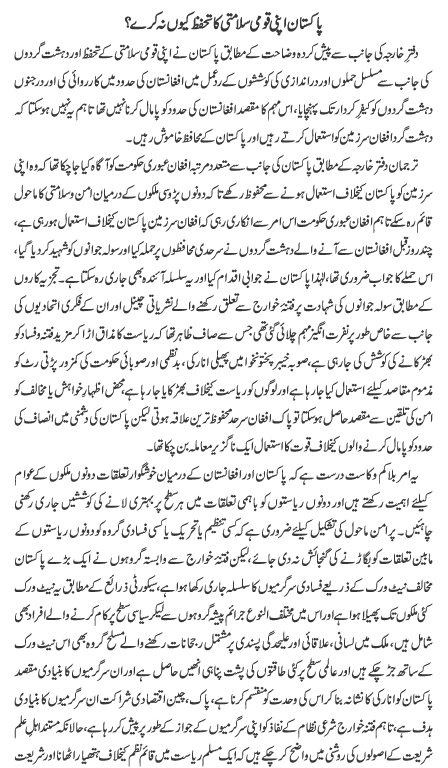 پاکستان اپنی قومی سلامتی کا تحفظ کیوں نہ کرے؟
دفتر خارجہ کی جانب سے پیش کردہ وضاحت کے مطابق پاکستان نے اپنی قومی سلامتی کے تحفظ اور دہشت گردوں
کی جانب سے مسلسل حملوں اور دراندازی کی کوششوں کے ردعمل میں افغانستان کی حدود میں کارروائی کی اور درجنوں
دہشت گردوں کو کیفر کردار تک پہنچایا، اس مہم کا مقصد افغانستان کی حدود کو پامال کرنا نہیں تھا تاہم یہ نہیں ہو سکتا کہ
دہشت گرد افغان سرزمین کو استعمال کرتے رہیں اور پاکستان کے محافظ خاموش رہیں۔
ترجمان دفتر خارجہ کے مطابق پاکستان کی جانب سے متعدد مرتبہ افغان عبوری حکومت کو آگاہ کیا جا چکا تھا کہ وہ اپنی
سرزمین کو پاکستان کیخلاف استعمال ہونے سے محفوظ رکھے تاکہ دونوں پڑوسی ملکوں کے درمیان امن و سلامتی کا ماحول
قائم رہ سکے تاہم افغان عبوری حکومت اس امر سے انکاری رہی کہ افغان سرزمین پاکستان کیخلاف استعمال ہو رہی ہے،
چند روز قبل افغانستان سے آنے والے دہشت گردوں نے سرحدی محافظوں پر حملہ کیا اور سولہ جوانوں کو شہید کر دیا گیا،
اس حملے کا جواب ضروری تھا، لہٰذا پاکستان نے جوابی اقدام کیا اور یہ سلسلہ آئندہ بھی جاری رہ سکتا ہے۔ تجزیہ کاروں
کے مطابق سولہ جوانوں کی شہادت پر فتنۂ خوارج سے تعلق رکھنے والے نشریاتی چینلز اور ان کے فکری اتحادیوں کی
جانب سے خاص طور پر نفرت انگیز مہم چلائی گئی تھی جس سے صاف ظاہر تھا کہ ریاست کا مذاق اڑا کر مزید فتنہ و فساد کو
بھڑکانے کی کوشش کی جا رہی ہے، صوبہ خیبر پختونخوا میں پھیلی انارکی، بدنظمی اور صوبائی حکومت کی کمزور پڑتی رٹ کو
مذموم مقاصد کیلئے استعمال کیا جا رہا ہے اور لوگوں کو ریاست کیخلاف بھڑکایا جا رہا ہے، محض اظہار خواہش یا مخالف کو
امن کی تلقین سے مقصد حاصل ہو سکتا تو پاک افغان سرحد محفوظ ترین علاقہ ہوتی لیکن پاکستان کی دشمنی میں انصاف کی
حدود کو پامال کرنے والوں کیخلاف قوت کا استعمال ایک ناگزیر معاملہ بن چکا تھا۔
یہ امر بلا کم و کاست درست ہے کہ پاکستان اور افغانستان کے درمیان خوشگوار تعلقات دونوں ملکوں کے عوام
کیلئے اہمیت رکھتے ہیں اور دونوں ریاستوں کو باہمی تعلقات میں ہر سطح پر بہتری لانے کی کوششیں جاری رکھنی
چاہئیں۔ پرامن ماحول کی تشکیل کیلئے ضروری ہے کہ کسی تنظیم یا تحریک یا کسی فسادی گروہ کو دونوں ریاستوں کے
مابین تعلقات کو بگاڑنے کی گنجائش نہ دی جائے، لیکن فتنۂ خوارج سے وابستہ گروہوں نے ایک بڑے پاکستان
مخالف نیٹ ورک کے ذریعے فسادی سرگرمیوں کا سلسلہ جاری رکھا ہوا ہے، سیکورٹی ذرائع کے مطابق یہ نیٹ ورک
کئی ملکوں تک پھیلا ہوا ہے اور اس میں مختلف النوع جرائم پیشہ گروہوں سے لیکر سیاسی سطح پر کام کرنے والے افراد بھی
شامل ہیں، ملک میں لسانی، علاقائی اور علیحدگی پسندی پر مشتمل رجحانات رکھنے والے مسلح گروہ بھی اس نیٹ ورک
کے ساتھ جڑ چکے ہیں اور عالمی سطح پر کئی طاقتوں کی پشت پناہی انہیں حاصل ہے اور ان سرگرمیوں کا بنیادی مقصد
پاکستان کو انارکی کا نشانہ بنا کر اس کی وحدت کو منقسم کرنا ہے، پاک، چین اقتصادی شراکت ان سرگرمیوں کا بنیادی
ہدف ہے، تاہم فتنۂ خوارج شرعی نظام کے نفاذ کو اپنی سرگرمیوں کے جواز کے طور پر پیش کر رہا ہے، حالانکہ مستند اہل علم
شریعت کے اصولوں کی روشنی میں واضح کر چکے ہیں کہ ایک مسلم ریاست میں قائم نظم کیخلاف ہتھیار اٹھانا اور شریعت